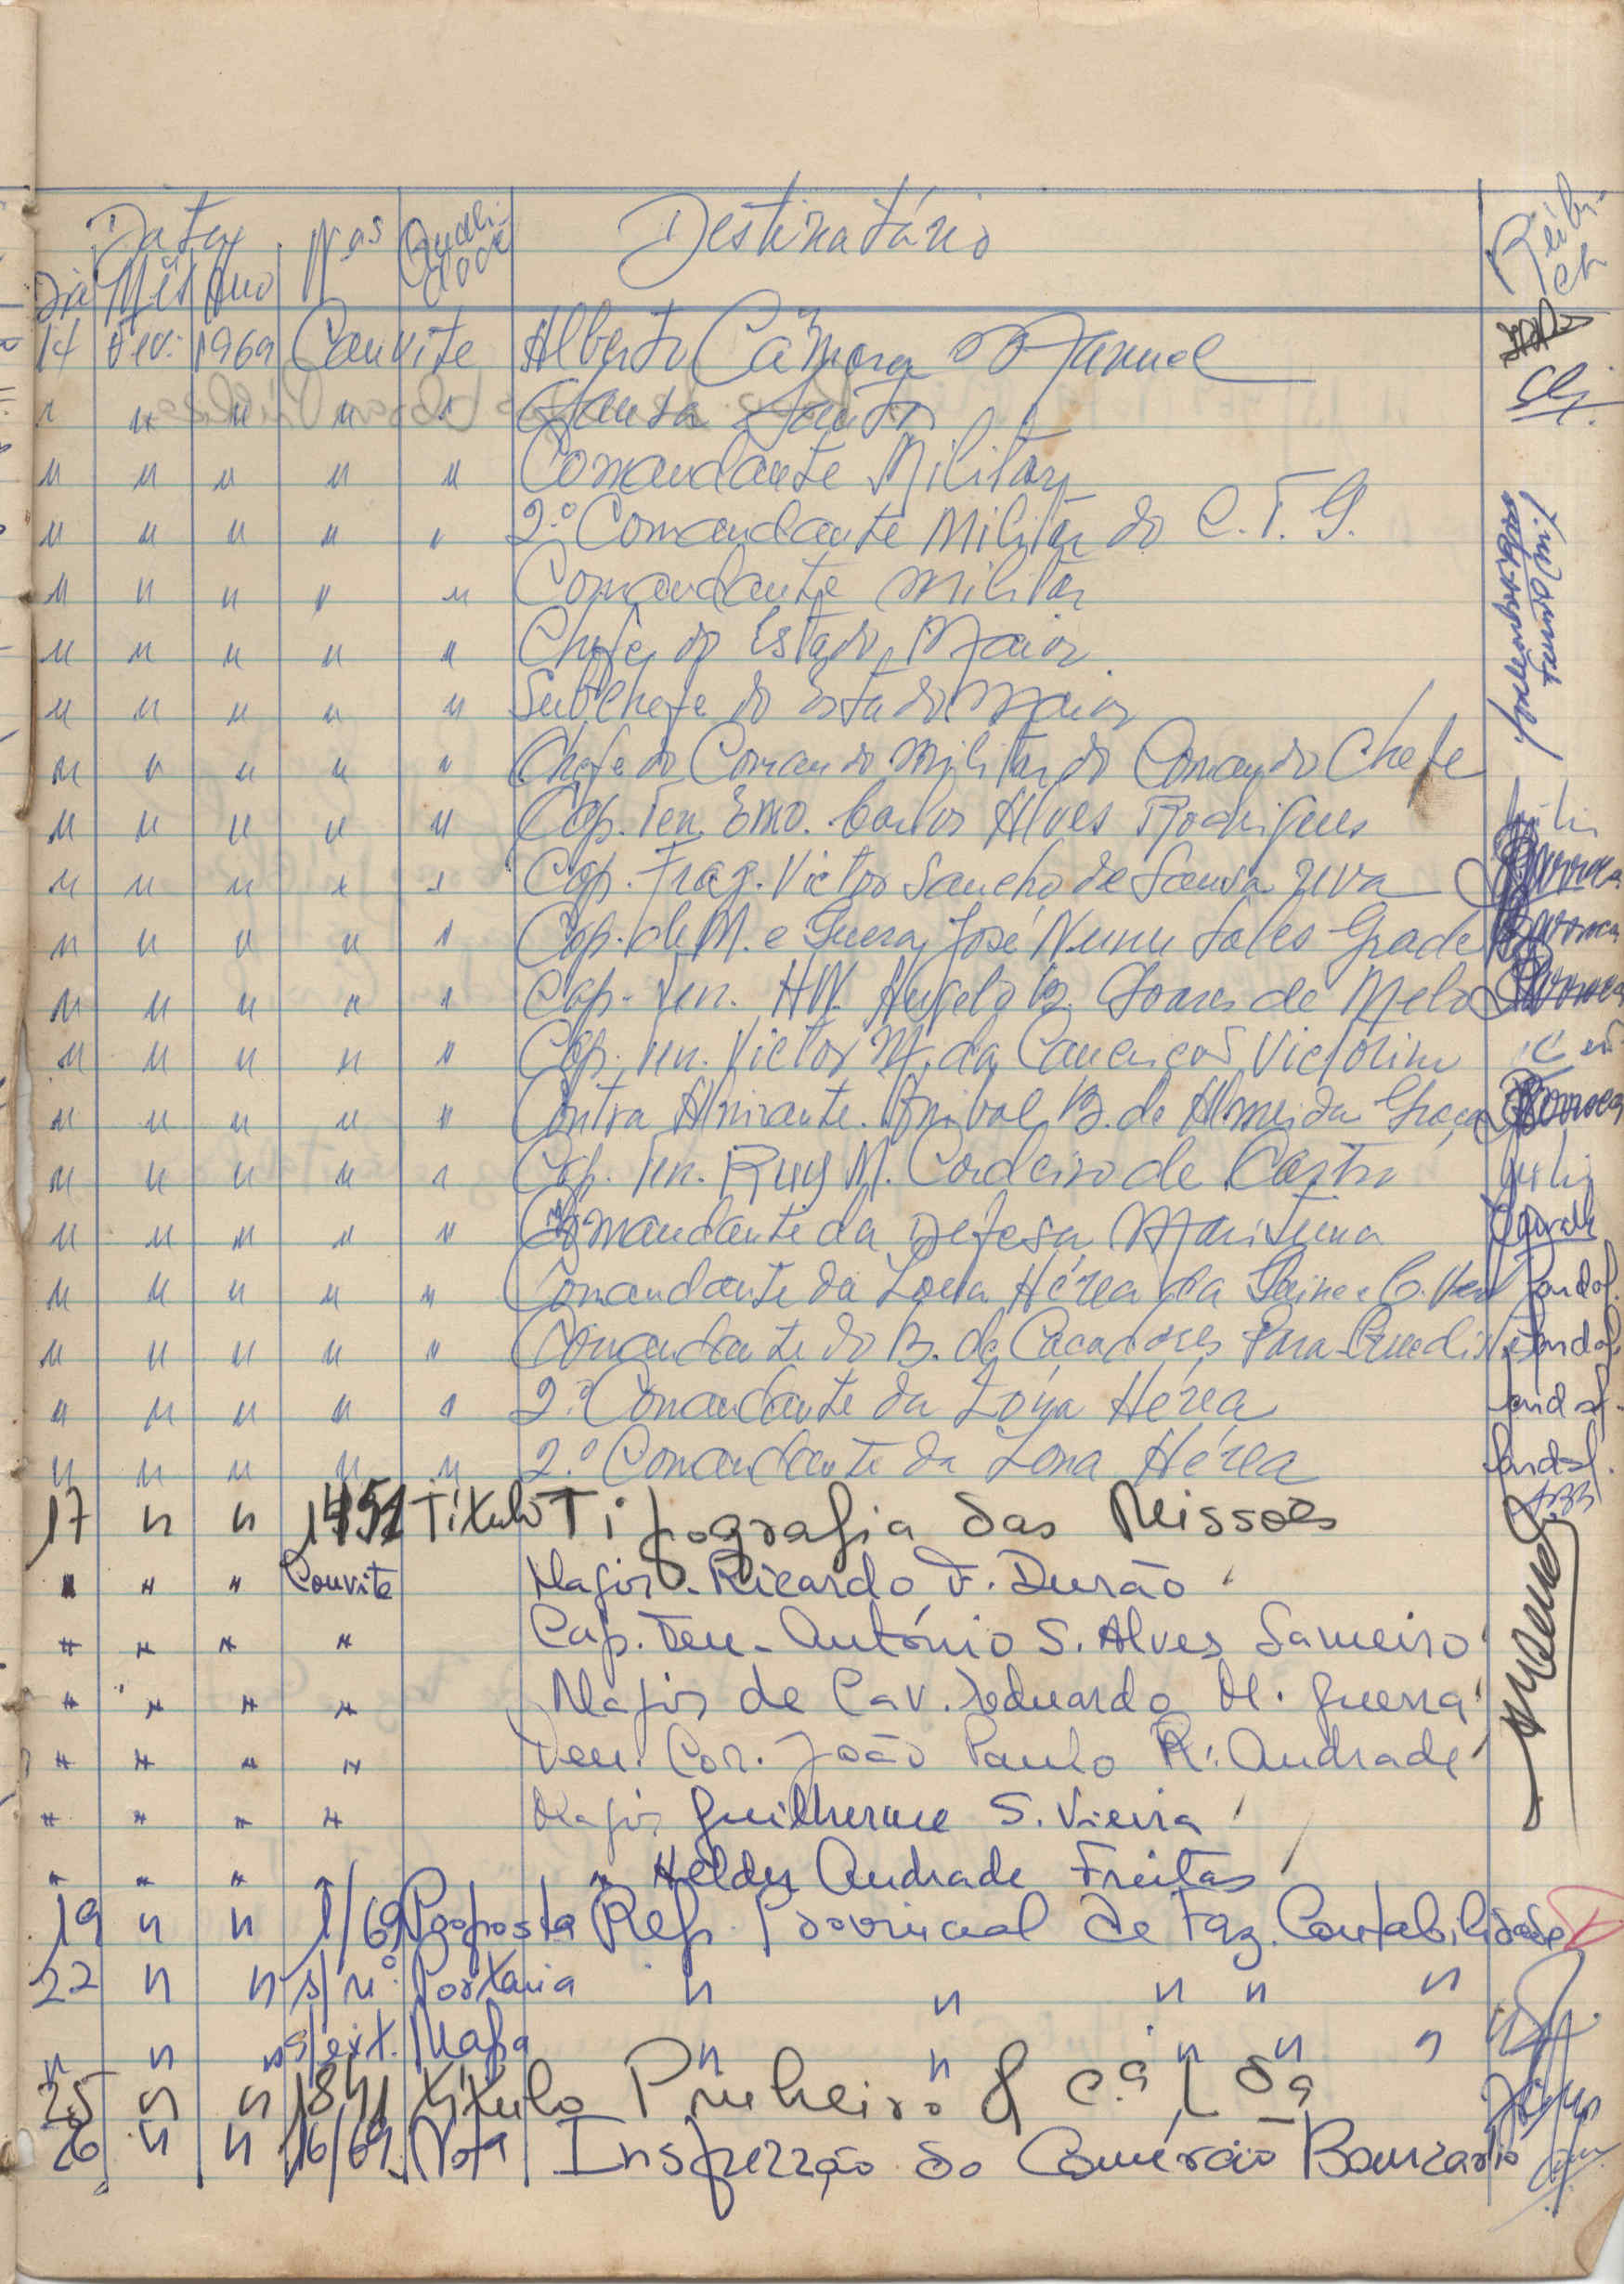 Datas Nos Quali- Destinatário
Dia Mês Ano dade
14 Fev. 1969 Convite Alberto Câmara Manuel
" " " " " Sousa Santos
" " " " " Comandante Militar
" " " " " 2.º Comandante Militar do C.T.G.
" " " " " Comandante Militar
" " " " " Chefe do Estado Maior
" " " " " Subchefe do Estado Maior
" " " " " Chefe do Comando Militar do Comando Chefe
" " " " " Cap. Ten. Emo. Carlos Alves Rodrigues
" " " " " Cap. Frag. Victor Sancho de Sousa Uva
" " " " " Cap. de M. e Guerra José Nunu Sales Grade
" " " " " Cap. Ten. HN. Angelo B. Soares de Melo
" " " " " Cap. Ten. Victor M. da Victorino
" " " " " Contra Almirante. Anibal B. de Almeida Graça
" " " " " Cap. Ten. Ruy M. Cordeiro de Castro
" " " " " Comandante da Defesa Maritima
" " " " " Comandante da Zona Aérea da Guine e C. Verd
" " " " " Comandante do B. de Caçadores Para-quedistas
" " " " " 2.º Comandante da Zona Aérea
" " " " " 2.º Comandante da Zona Aérea
17 " " 1451 Título Tipografia das Missões
" " " Convite Major - Ricardo F. Durão
" " " " Cap. Ten - António S. Alves Sameiro
" " " " Major de Cav. Eduardo M. Guerra
" " " " Ten. Cor. João Paulo R. Andrade
" " " " Major Guilherme S. Vieira
" " " " " Helder Andrade Freitas
19 " " 1/69 Proposta Rep. Provincial de Faz. Contabilidade
22 " " s/nº Portaria " " " " "
" " " s/ext. Mapa " " " " "
25 " " 1841 título Pinheiro & C.ª Lda
26 " " 16/69 Nota Inspecção do Comércio Bancario